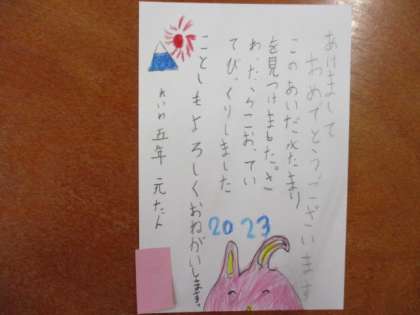 あけまして
おめでとうございます
このあいだ水たまり
を見つけました。さ
わったらこおってい
てびっくりしました
ことしもよろしくおねがいします。
れいわ五年 元たん
2023